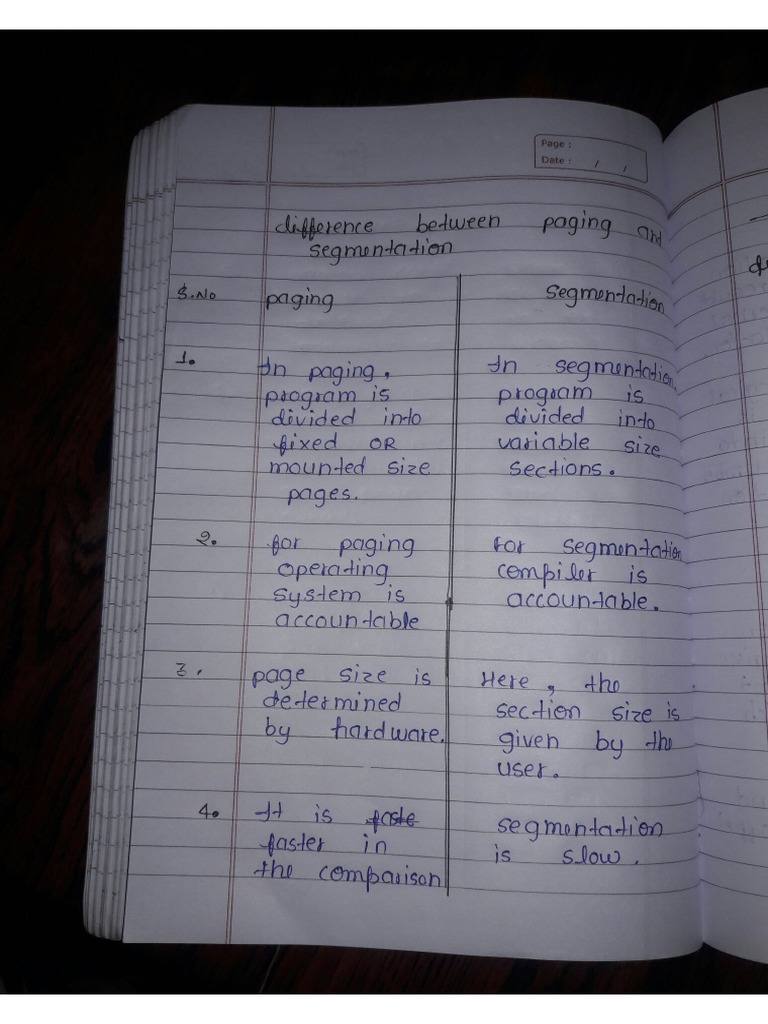 Page :
Date : / /
difference between paging and
segmentation
S.No paging Segmentation
1. In paging, In segmentation,
program is program is
divided into divided into
fixed OR variable size
mounted size sections.
pages.
2. for paging For segmentation
operating compiler is
system is accountable.
accountable
3. page size is Here, the
determined section size is
by hardware. given by the
user.
4. It is faste segmentation
faster in is slow.
the comparison